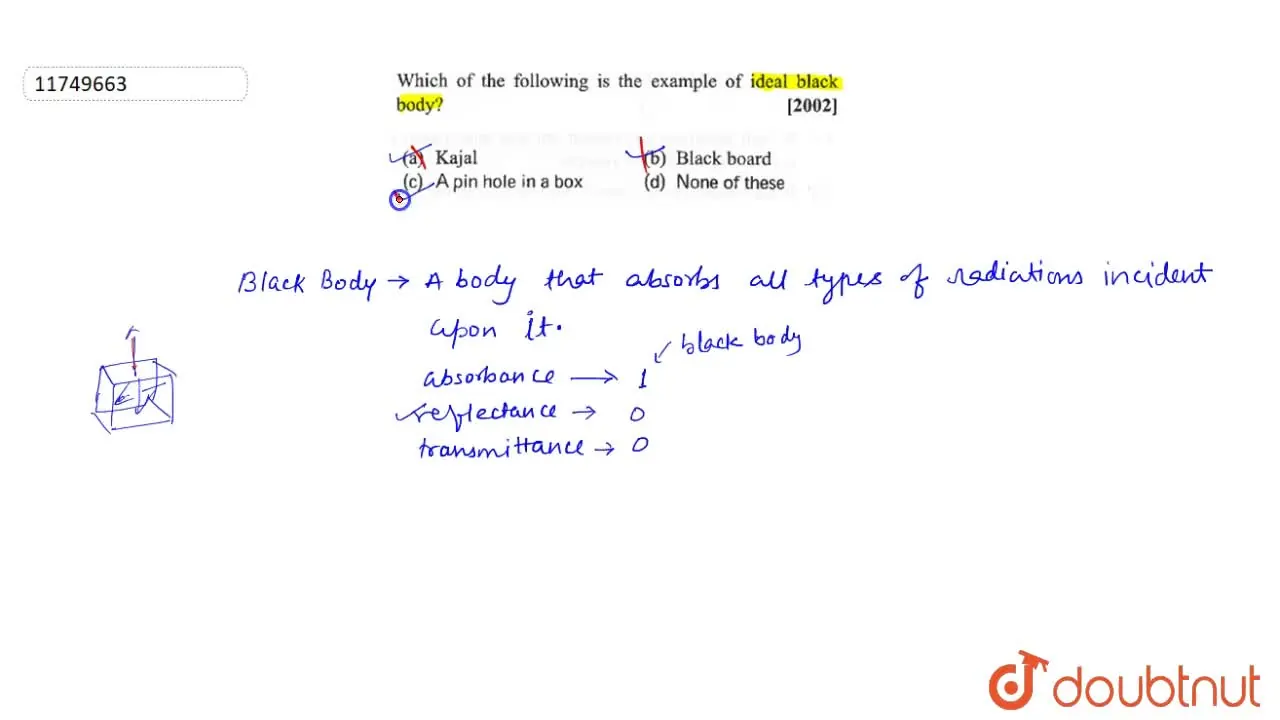 11749663
Which of the following is the example of ideal black
body? [2002]
(a) Kajal (b) Black board
(c) A pin hole in a box (d) None of these
Black Body → A body that absorbs all types of radiations incident
upon it.
black body
absorbance → 1
reflectance → 0
transmittance → 0
doubtnut